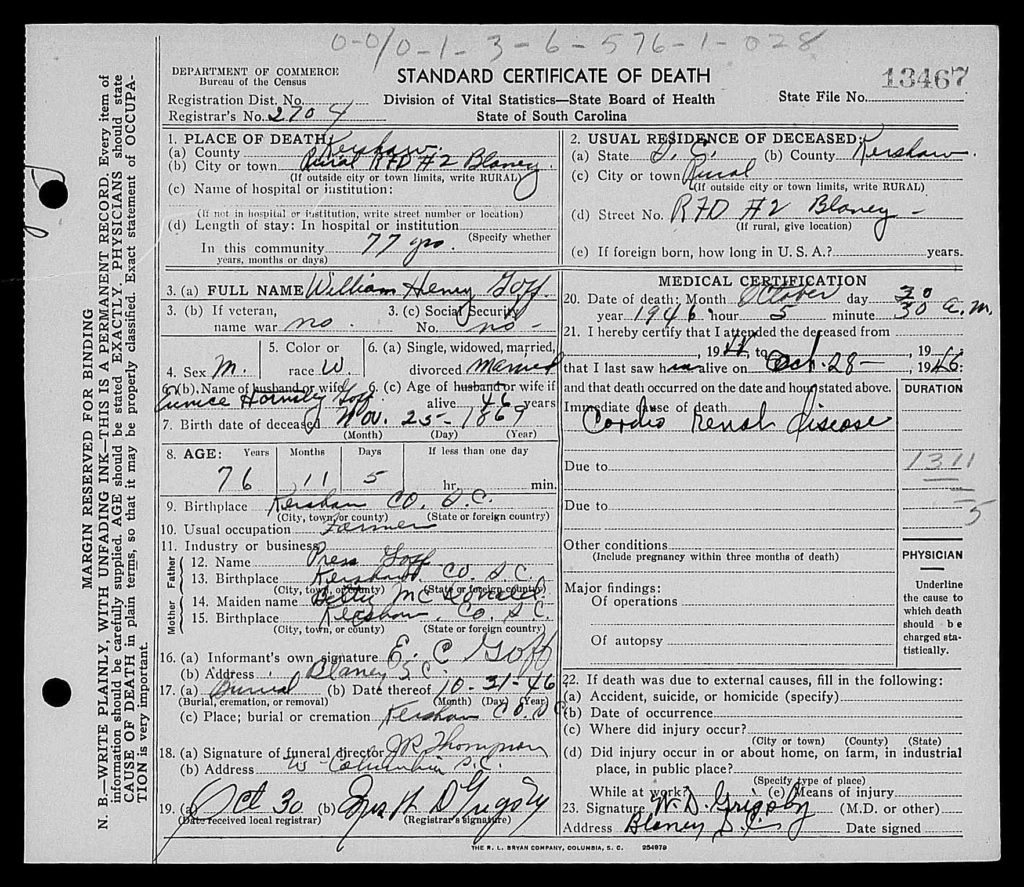 0-0/0-1-3-6-576-1-028
DEPARTMENT OF COMMERCE
Bureau of the Census
STANDARD CERTIFICATE OF DEATH
13467
Registration Dist. No.
Registrar's No. 2704
Division of Vital Statistics—State Board of Health
State of South Carolina
State File No.
MARGIN RESERVED FOR BINDING
N. B.—WRITE PLAINLY, WITH UNFADING INK—THIS IS A PERMANENT RECORD. Every item of
information should be carefully supplied. AGE should be stated EXACTLY. PHYSICIANS should state
CAUSE OF DEATH in plain terms, so that it may be properly classified. Exact statement of OCCUPA-
TION is very important.
1. PLACE OF DEATH
(a) County Kershaw
(b) City or town Rural RFD #2 Blaney
(If outside city or town limits, write RURAL)
(c) Name of hospital or institution:
(If not in hospital or institution, write street number or location)
(d) Length of stay: In hospital or institution
(Specify whether
In this community 77 yrs.
years, months or days)
2. USUAL RESIDENCE OF DECEASED:
(a) State S. C. (b) County Kershaw.
(c) City or town Rural
(If outside city or town limits, write RURAL)
(d) Street No. RFD #2 Blaney -
(If rural, give location)
(e) If foreign born, how long in U. S. A.? years.
3. (a) FULL NAME William Henry Goff.
3. (b) If veteran,
name war no.
3. (c) Social Security
No. no -
4. Sex M.
5. Color or
race W.
6. (a) Single, widowed, married,
divorced married
6. (b) Name of husband or wife
Eunice Hornsby Goff
6. (c) Age of husband or wife if
alive 46 years
7. Birth date of deceased Nov. 25 - 1869
(Month) (Day) (Year)
8. AGE: Years Months Days If less than one day
76 11 5 hr. min.
9. Birthplace Kershaw Co. S.C.
(City, town, or county) (State or foreign country)
10. Usual occupation Farmer
11. Industry or business
Father
12. Name Press Goff
13. Birthplace Kershaw. Co. S.C.
(City, town, or county) (State or foreign country)
Mother
14. Maiden name
15. Birthplace Kershaw. Co. S.C.
(City, town, or county) (State or foreign country)
16. (a) Informant's own signature E. C Goff
(b) Address Blaney S.C.
17. (a) Burial (b) Date thereof 10-31-46
(Burial, cremation, or removal) (Month) (Day) (Year)
(c) Place; burial or cremation Kershaw Co. S.C
18. (a) Signature of funeral director J R Thompson
(b) Address W Columbia S.C.
19. (a) Oct 30 (b) Mrs W D Grigsby
(Date received local registrar) (Registrar's signature)
MEDICAL CERTIFICATION
20. Date of death: Month October day 30
year 1946 hour 5 minute 30 a.m.
21. I hereby certify that I attended the deceased from
, 19 to Oct. 28 - , 1946
that I last saw him alive on , 19
and that death occurred on the date and hour stated above.
DURATION
Immediate cause of death
Cardio Renal disease
Due to
1311
Due to
5
Other conditions
(Include pregnancy within three months of death)
PHYSICIAN
Underline
the cause to
which death
should be
charged sta-
tistically.
Major findings:
Of operations
Of autopsy
22. If death was due to external causes, fill in the following:
(a) Accident, suicide, or homicide (specify)
(b) Date of occurrence
(c) Where did injury occur?
(City or town) (County) (State)
(d) Did injury occur in or about home, on farm, in industrial
place, in public place?
(Specify type of place)
While at work? (e) Means of injury
23. Signature W. D. Grigsby (M.D. or other)
Address Blaney S.C. Date signed
THE R. L. BRYAN COMPANY, COLUMBIA, S. C. 254979